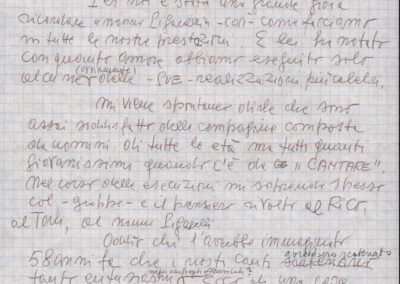 Per noi è stata una grande gioia
ricordare "nonno Pigarelli - così - come facciamo
in tutte le nostre prestazioni. E lei ha notato
con quanto amore abbiamo eseguito solo
alcune (ovviamente) delle - SUE - realizzazioni più celebri.
Mi viene spontaneo dirle che sono
assai soddisfatto della compagine composta
da uomini di tutte le età ma tutti quanti
giovanissimi quando c'è da "CANTARE".
Nel corso delle esecuzioni mi sorprendo spesso
col - gruppo - e il pensiero rivolto al Rico,
al Toni, al nonno Pigarelli
chi l'avrebbe immaginato
58 anni fa che i nostri canti avrebbero scatenato
tanto entusiasmo